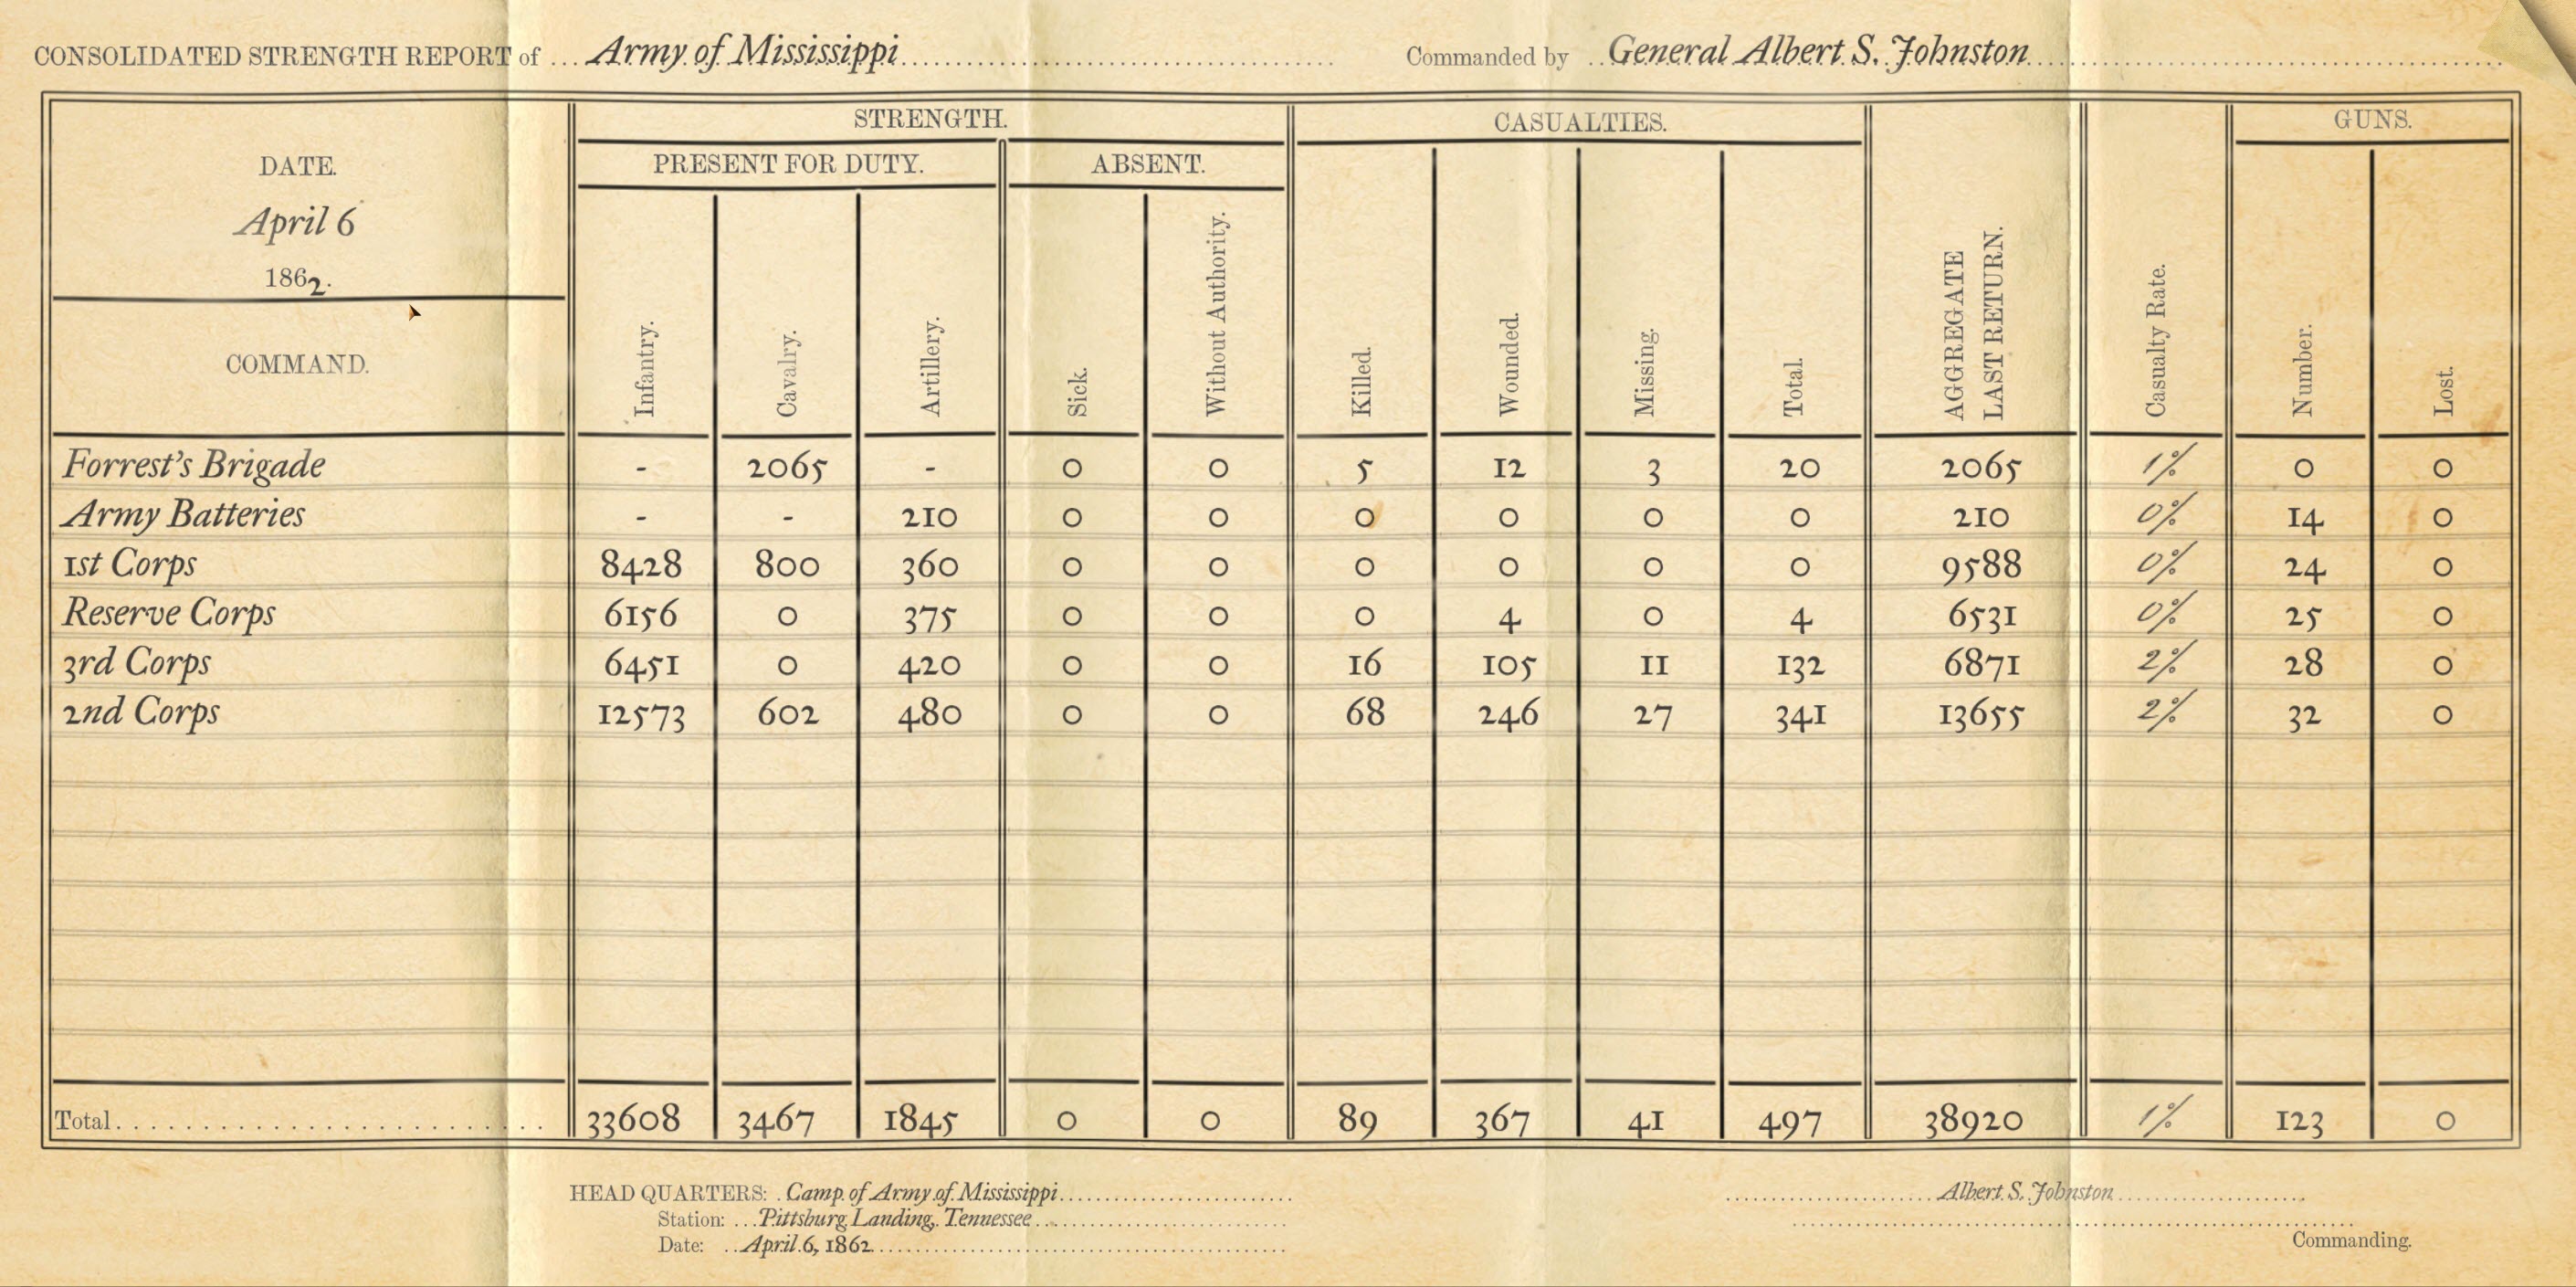 CONSOLIDATED STRENGTH REPORT of ... Army of Mississippi Commanded by General Albert S. Johnston
STRENGTH. CASUALTIES. GUNS.
DATE. PRESENT FOR DUTY. ABSENT.
April 6
1862.
COMMAND. Infantry. Cavalry. Artillery. Sick. Without Authority. Killed. Wounded. Missing. Total. AGGREGATE LAST RETURN. Casualty Rate. Number. Lost.
Forrest's Brigade - 2065 - 0 0 5 12 3 20 2065 1% 0 0
Army Batteries - - 210 0 0 0 0 0 0 210 0% 14 0
1st Corps 8428 800 360 0 0 0 0 0 0 9588 0% 24 0
Reserve Corps 6156 0 375 0 0 0 4 0 4 6531 0% 25 0
3rd Corps 6451 0 420 0 0 16 105 11 132 6871 2% 28 0
2nd Corps 12573 602 480 0 0 68 246 27 341 13655 2% 32 0
Total 33608 3467 1845 0 0 89 367 41 497 38920 1% 123 0
HEAD QUARTERS: Camp of Army of Mississippi Albert S. Johnston
Station: Pittsburg Landing, Tennessee
Date: April 6, 1862 Commanding.